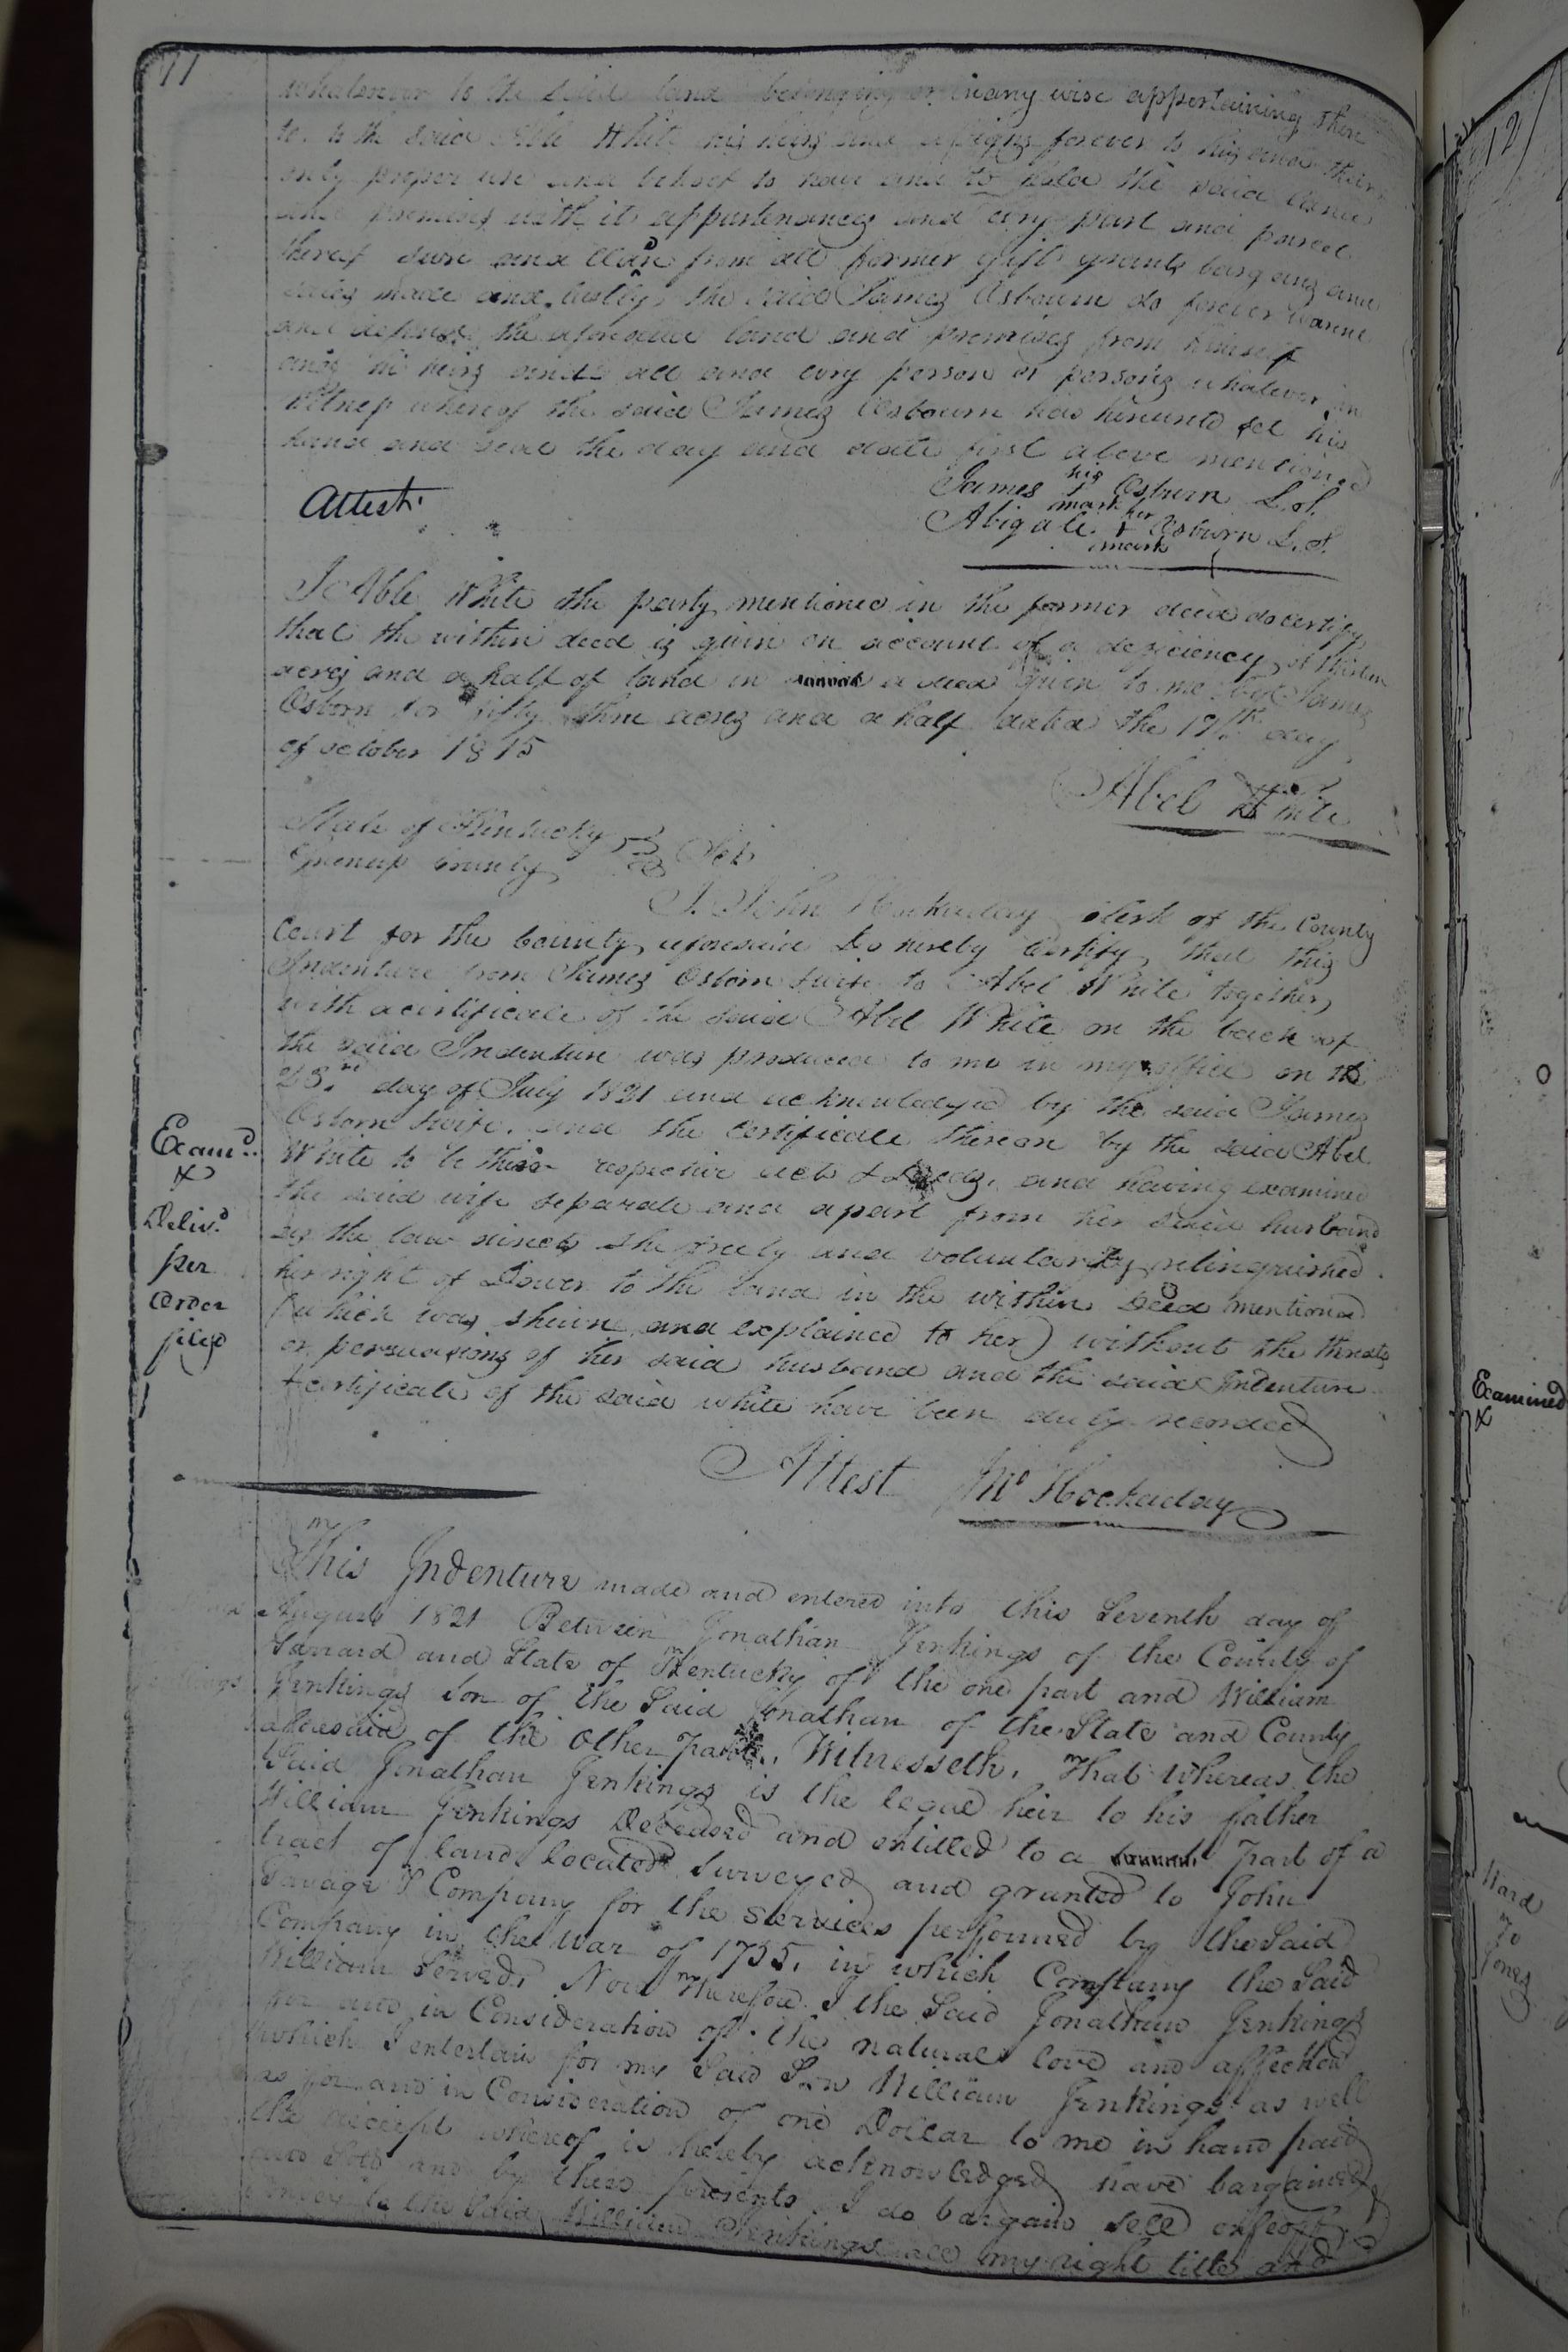 11
whatsoever to the said land belonging or in any wise appertaining there
to. to the said Able White his heirs and assigns forever to his and their
only proper use and behoof to have and to hold the said land
and premises with its appurtenances and evry part and parcel
thereof sure and clear from all former gifts grants bargains and
sales made and lastly the said James Osbourn do forever warrent
and defend the aforesaid land and premises from himself
and his heirs and all and evry person or persons whatever in
witness whereof the said James Osbourn has hereunto set his
hand and seal the day and date first above mentioned
Attest.
James his Osburn L.S.
mark
Abigale her + Osburn L.S.
mark
I Able White the party mentioned in the former deed do certify
that the within deed is given on account of a deficiency of thirteen
acres and a half of land in a deed given to me by James
Osborn for fifty three acres and a half dated the 17th day
of october 1815
Abel White
State of Kentucky
Greenup County Sct
I John Hockaday Clerk of the County
Court for the County aforesaid Do hereby Certify that this
Indenture from James Osborn & wife to Abel White together
with a certificate of the said Abel White on the back of
the said Indenture was produced to me in my office on the
23rd day of July 1821 and acknowledged by the said James
Osborn & wife. and the Certificate thereon by the said Abel
White to be their respective acts & Deeds, and having examined
the said wife separate and apart from her said husband
as the law directs she freely and voluntarily relinquished
her right of Dower to the land in the within Deed mentioned
(which was shewn and explained to her) without the threats
or persuasions of her said husband and the said Indenture
& certificate of the said white have been duly recorded
Attest Jno Hockaday
Examd.
&
Delivd
per
order
filed
This Indenture made and entered into this Seventh day of
August 1821 Between Jonathan Jenkings of the County of
Garrard and State of Kentucky of the one part and William
Jenkings Son of the Said Jonathan of the State and County
aforesaid of the Other part, Witnesseth, That whereas the
Said Jonathan Jenkings is the legal heir to his father
William Jenkings Deceased and entitled to a Part of a
tract of land located Surveyed and granted to John
Savage & Company for the Services performed by the Said
Company in the War of 1755, in which Company the Said
William Served, Now Therefore I the Said Jonathan Jenkings
for and in Consideration of the natural love and affection
which I entertain for my Said Son William Jenkings as well
as for and in Consideration of one Dollar to me in hand paid
the receipt whereof is hereby acknowledged have bargained
and Sold and by these presents I do bargain Sell enfeoff
convey to the Said William Jenkings all my right title and
12
Examined
&
Ward
To
Jones